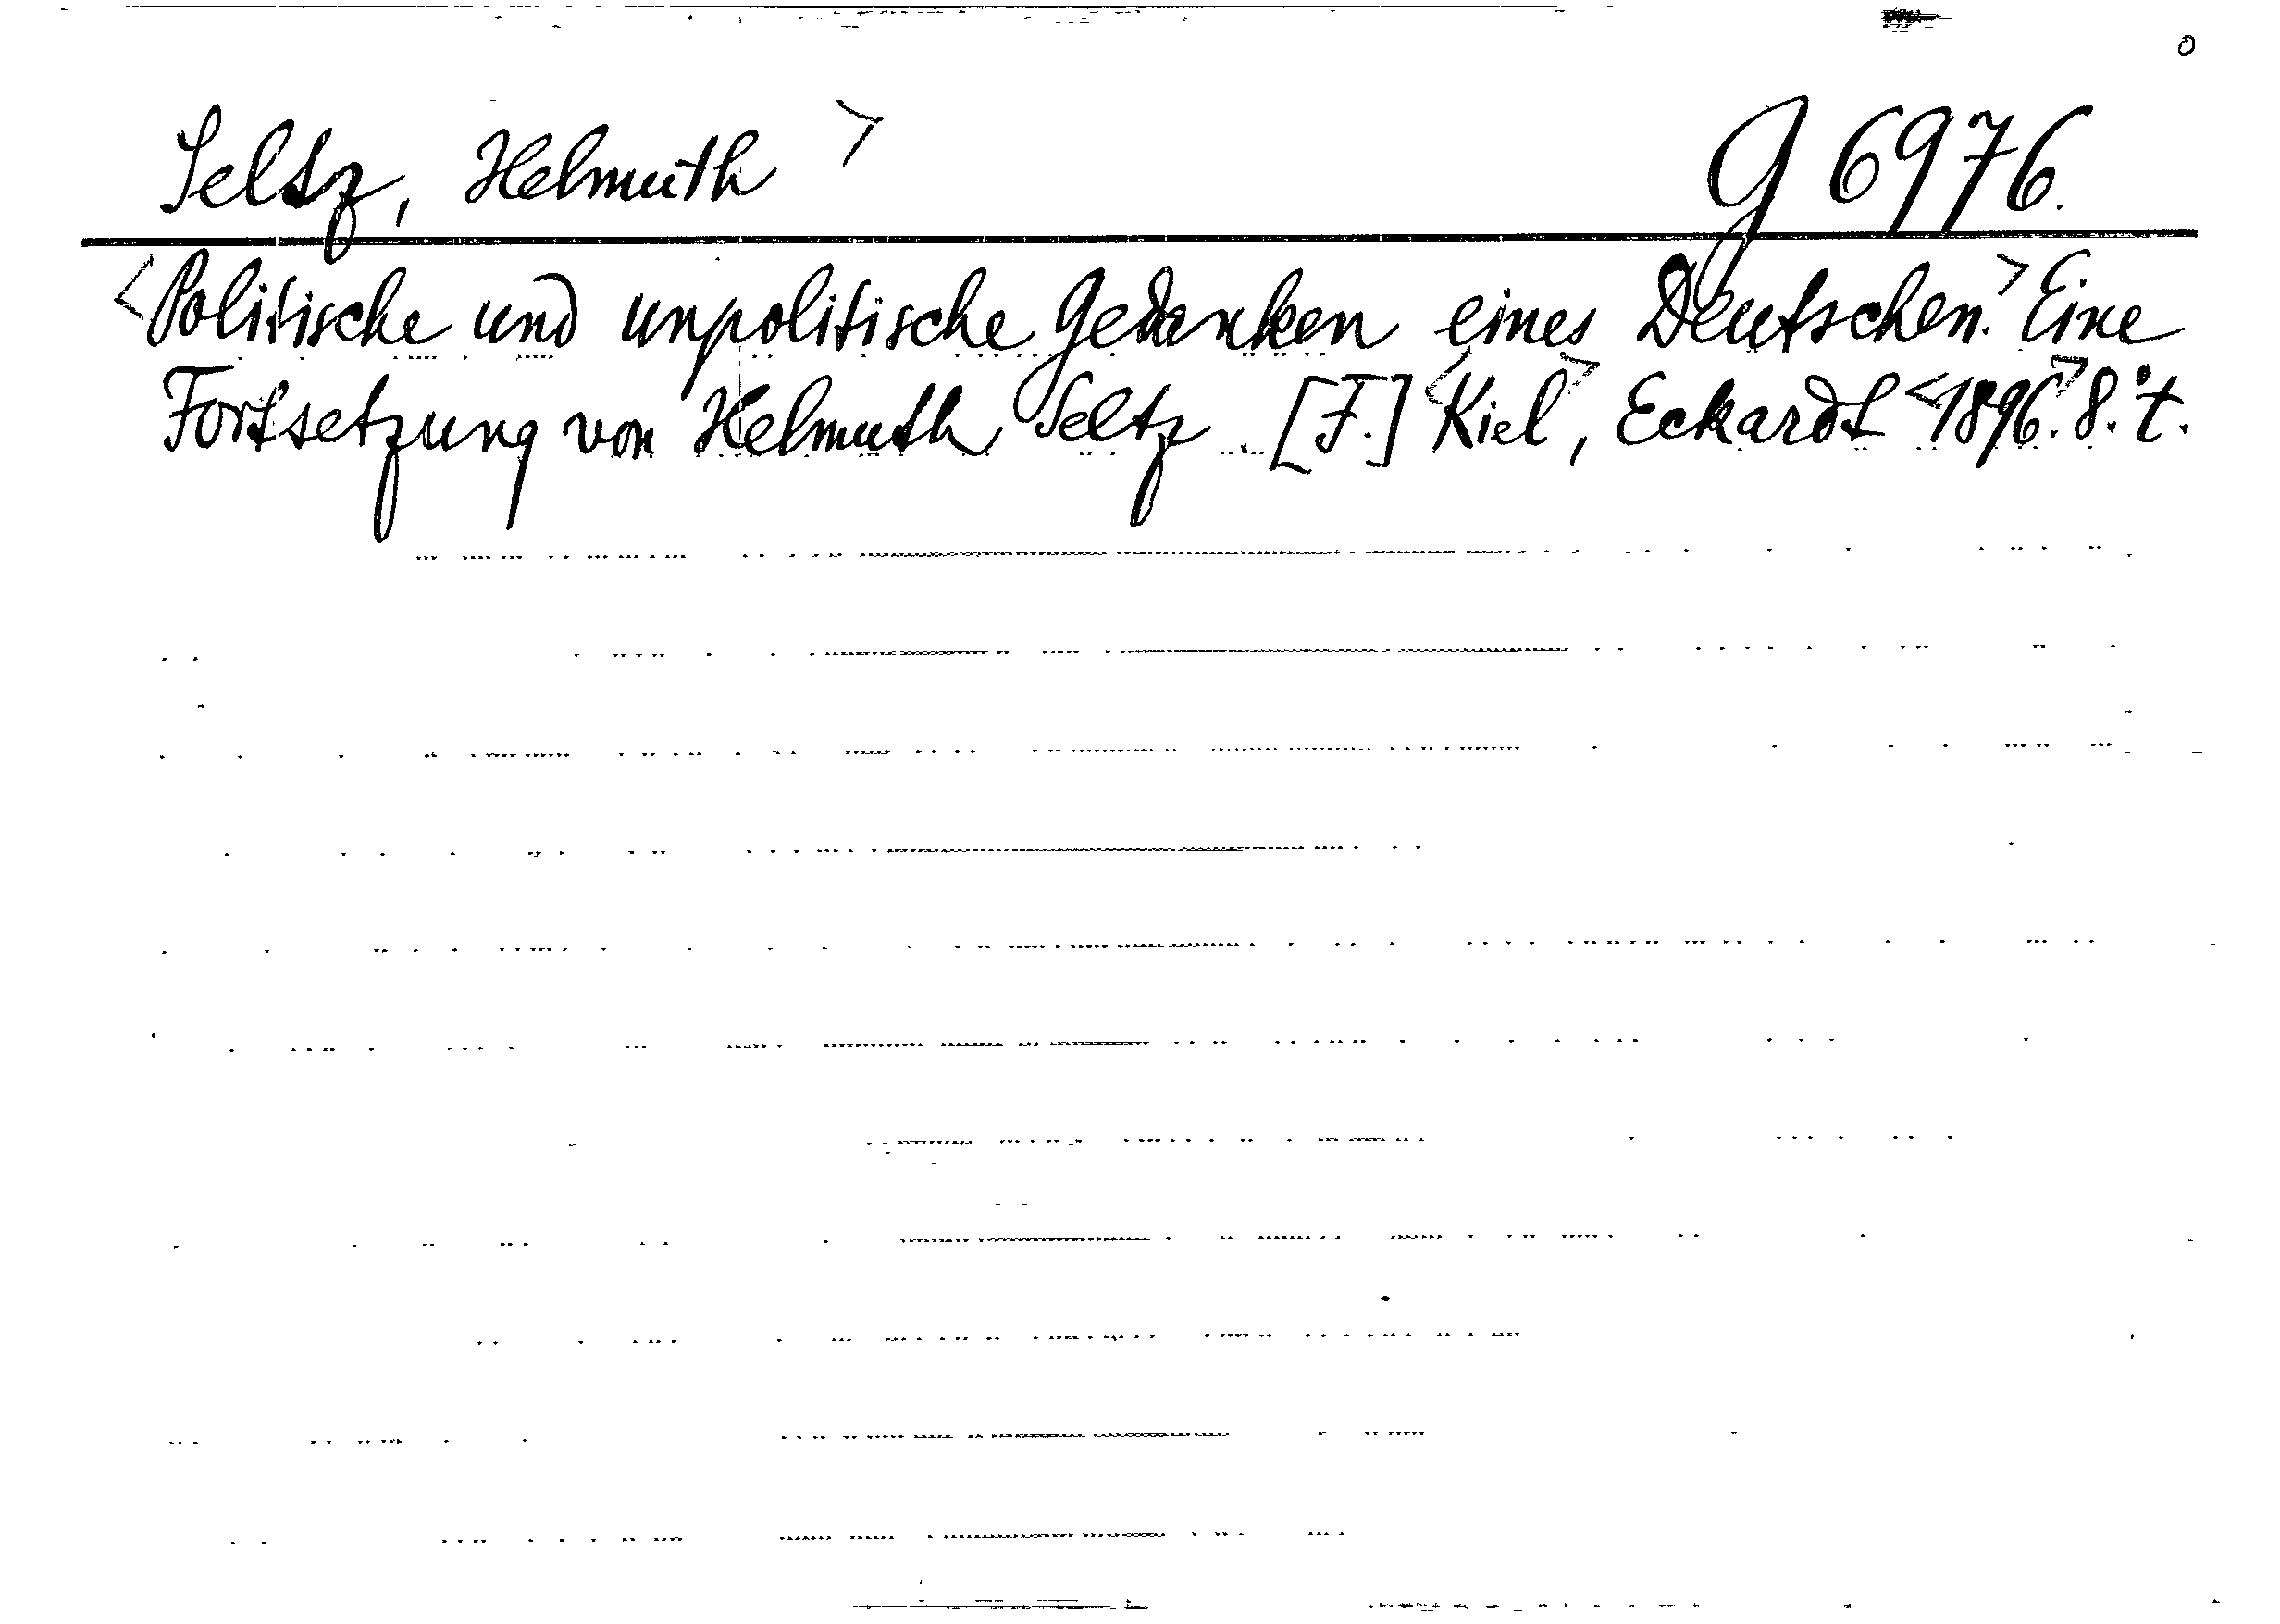 Seltz, Helmuth > G 6976.
<Politische und unpolitische Gedanken eines Deutschen.> Eine
Fortsetzung von Helmuth Seltz. [F.] <Kiel>, Eckardt <1896.> 8.° t.